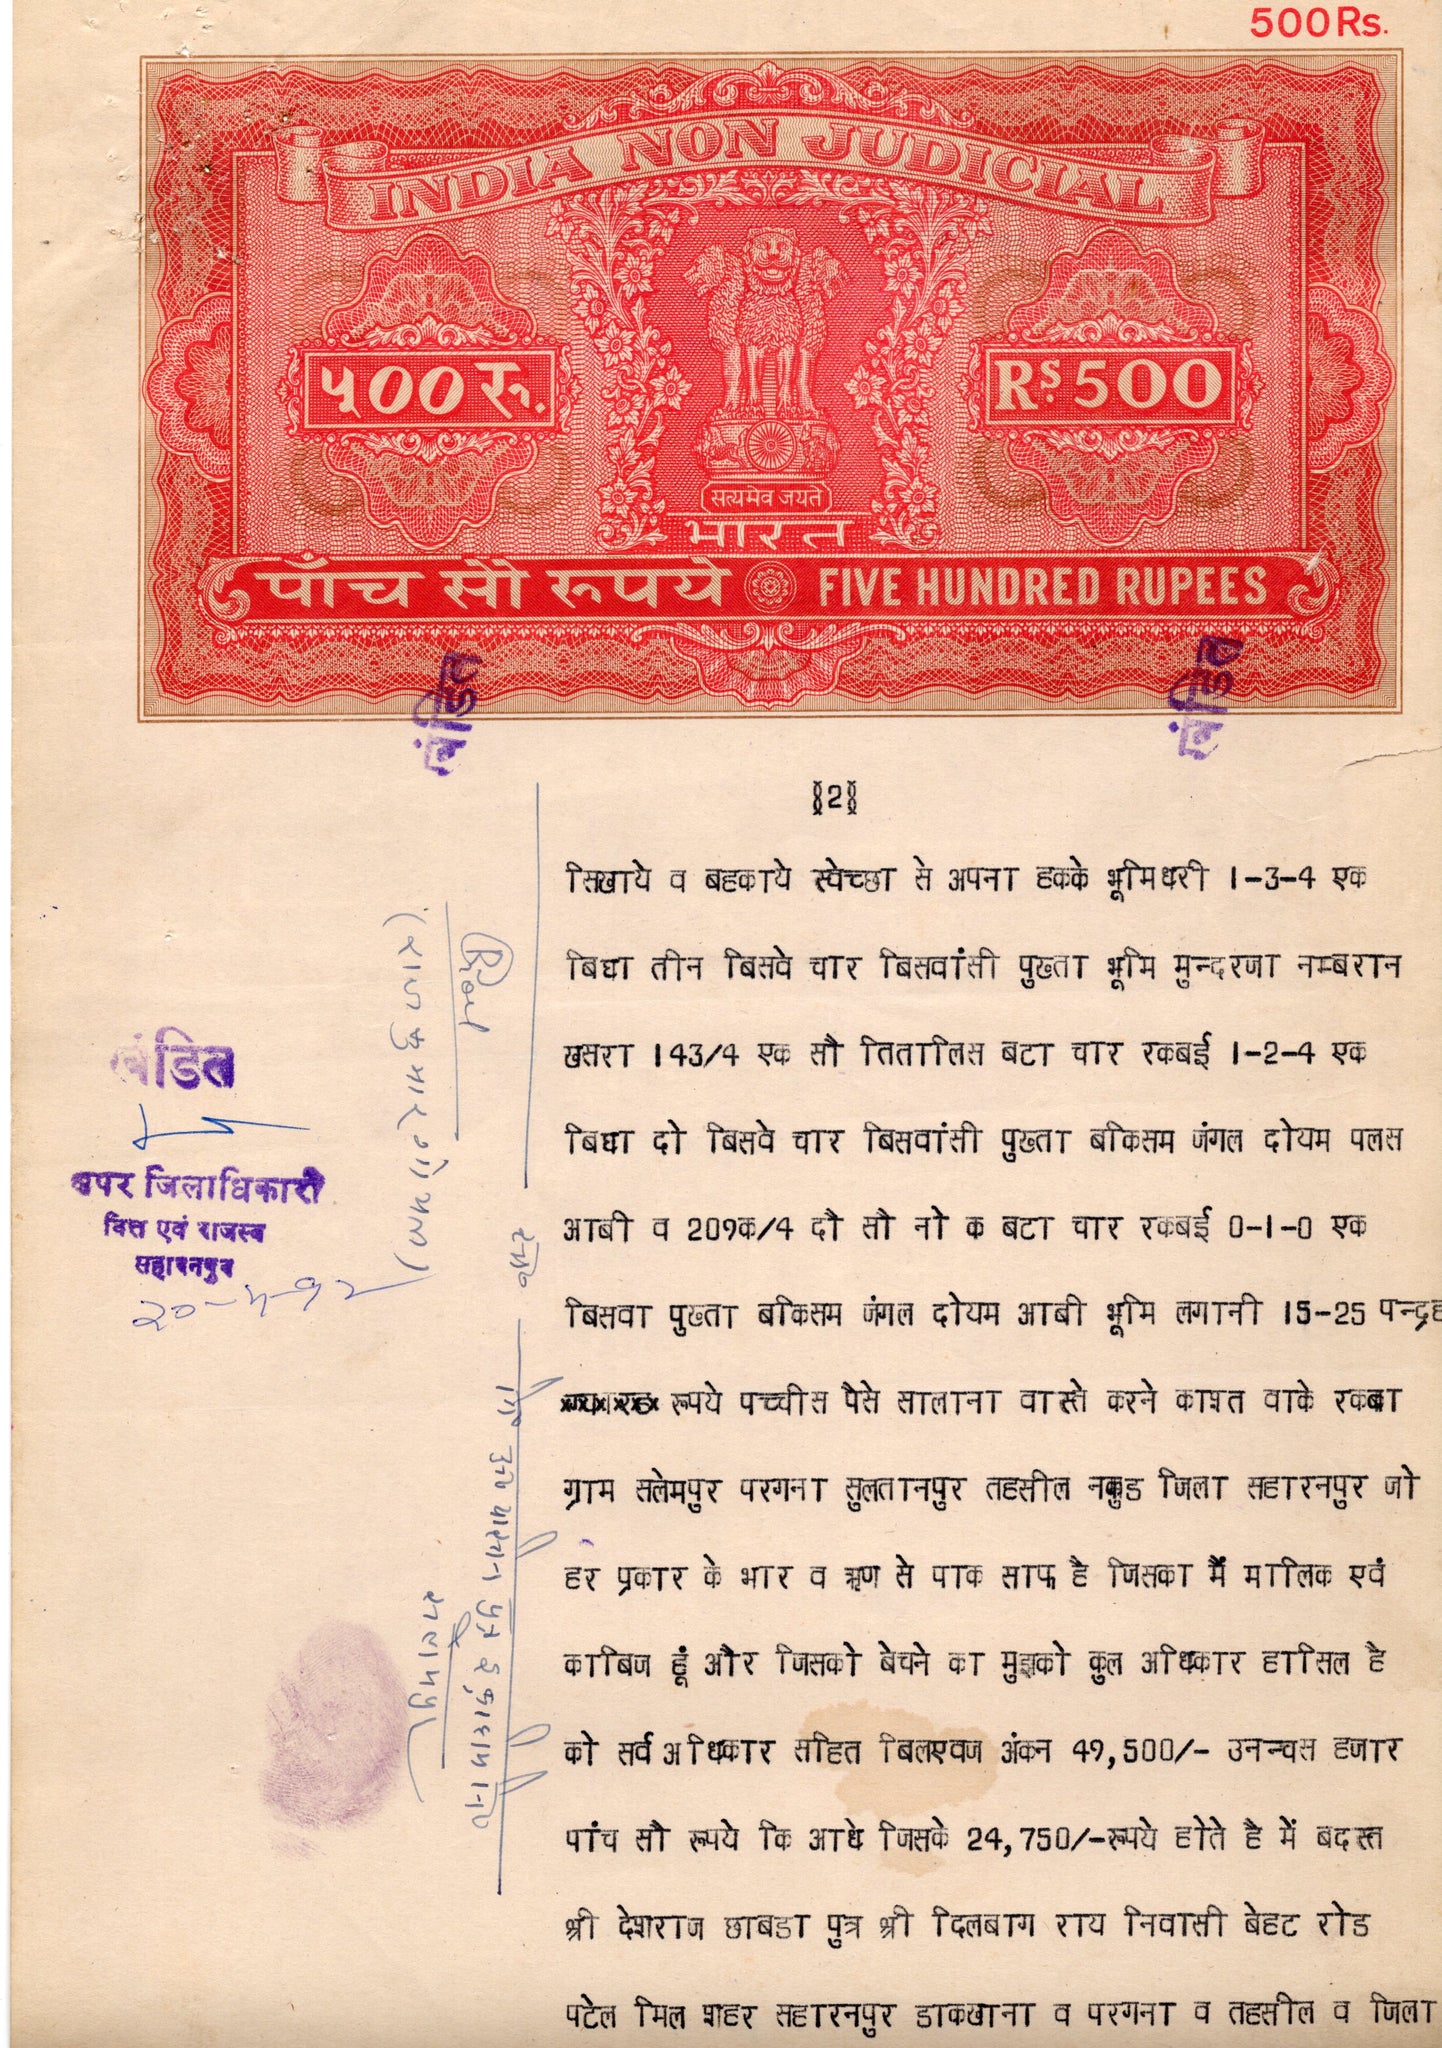 500Rs.
INDIA NON JUDICIAL
५00 रु.
Rs. 500
सत्यमेव जयते
भारत
पाँच सौ रुपये FIVE HUNDRED RUPEES
खंडित
खंडित
§2§
सिखाये व बहकाये स्वेच्छा से अपना हकके भूमिधरी 1-3-4 एक
बिघा तीन बिसवे चार बिसवांसी पुख्ता भूमि मुन्दरजा नम्बरान
खसरा 143/4 एक सौ तितालिस बटा चार रकबई 1-2-4 एक
बिघा दो बिसवे चार बिसवांसी पुख्ता बकिसम जंगल दोयम पलस
आबी व 209क/4 दौ सौ नो क बटा चार रकबई 0-1-0 एक
बिसवा पुख्ता बकिसम जंगल दोयम आबी भूमि लगानी 15-25 पन्द्रह
रूपये पच्चीस पैसे सालाना वास्ते करने काश्त वाके रकबा
ग्राम सलेमपुर परगना सुलतानपुर तहसील नकुड जिला सहारनपुर जो
हर प्रकार के भार व ऋण से पाक साफ है जिसका मैं मालिक एवं
काबिज हूं और जिसको बेचने का मुझको कुल अधिकार हासिल है
को सर्व अधिकार सहित बिलएवज अंकन 49,500/- उनन्चस हजार
पांच सौ रूपये कि आधे जिसके 24,750/-रूपये होते है में बदस्त
श्री देशराज छाबडा पुत्र श्री दिलबाग राय निवासी बेहट रोड
पटेल मिल शहर सहारनपुर डाकखाना व परगना व तहसील व जिला
खंडित
अपर जिलाधिकारी
वित्त एवं राजस्व
सहारनपुर
२०-५-९२
(राजकुमार गोयल)